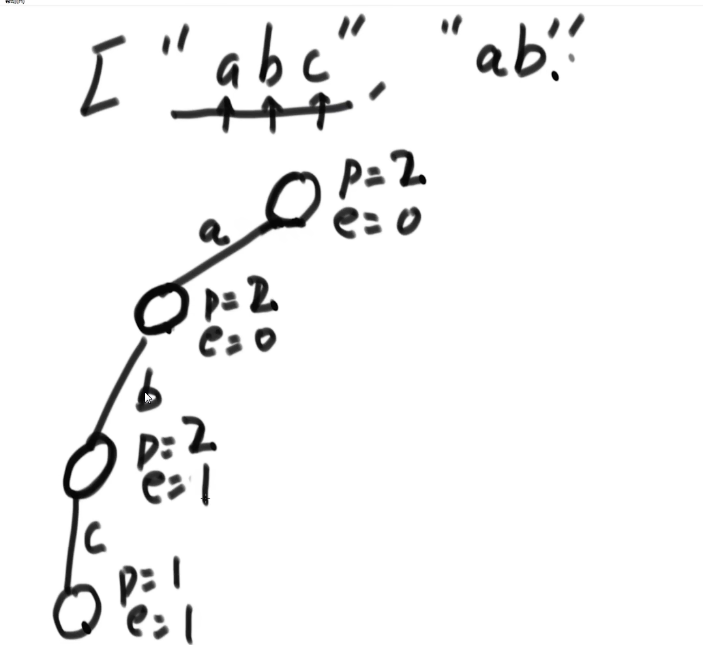 ["abc", "ab"
p=2
e=0
a
p=2
e=0
b
p=2
e=1
c
p=1
e=1